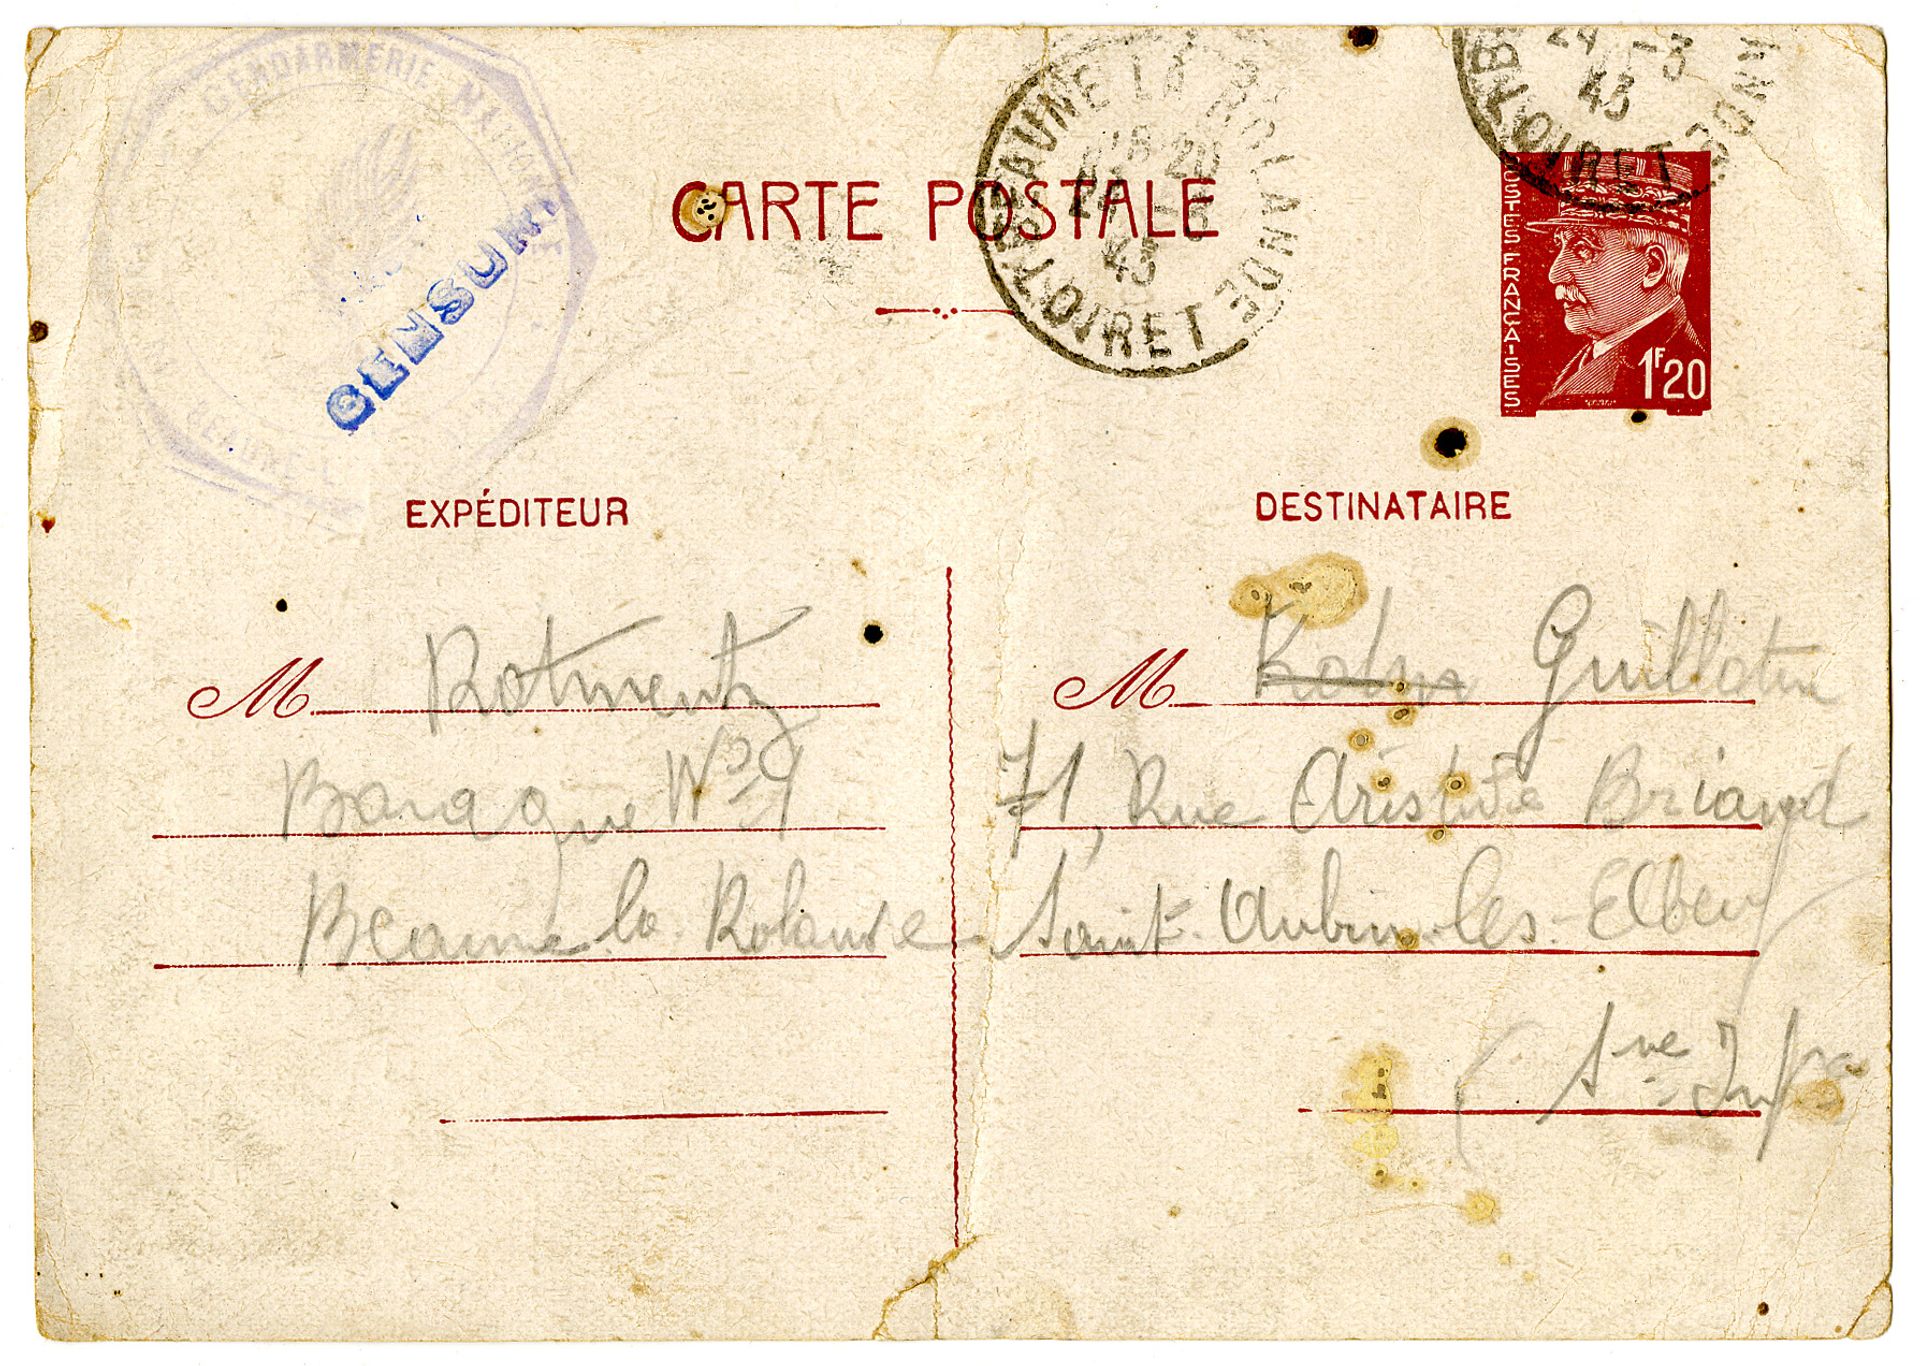 GENDARMERIE NATIONALE
BEAUNE-L
CENSURE
CARTE POSTALE
BEAUNE LA ROLANDE
18 20
24 -3
43
LOIRET
24 -3
43
LOIRET
POSTES FRANÇAISES
1F20
EXPÉDITEUR
M Rotmentz
Baraque No 9
Beaune-la-Rolande
DESTINATAIRE
M Guillotin
71, Rue Aristide Briand
Saint-Aubin-les-Elbeuf
(Sne Infre